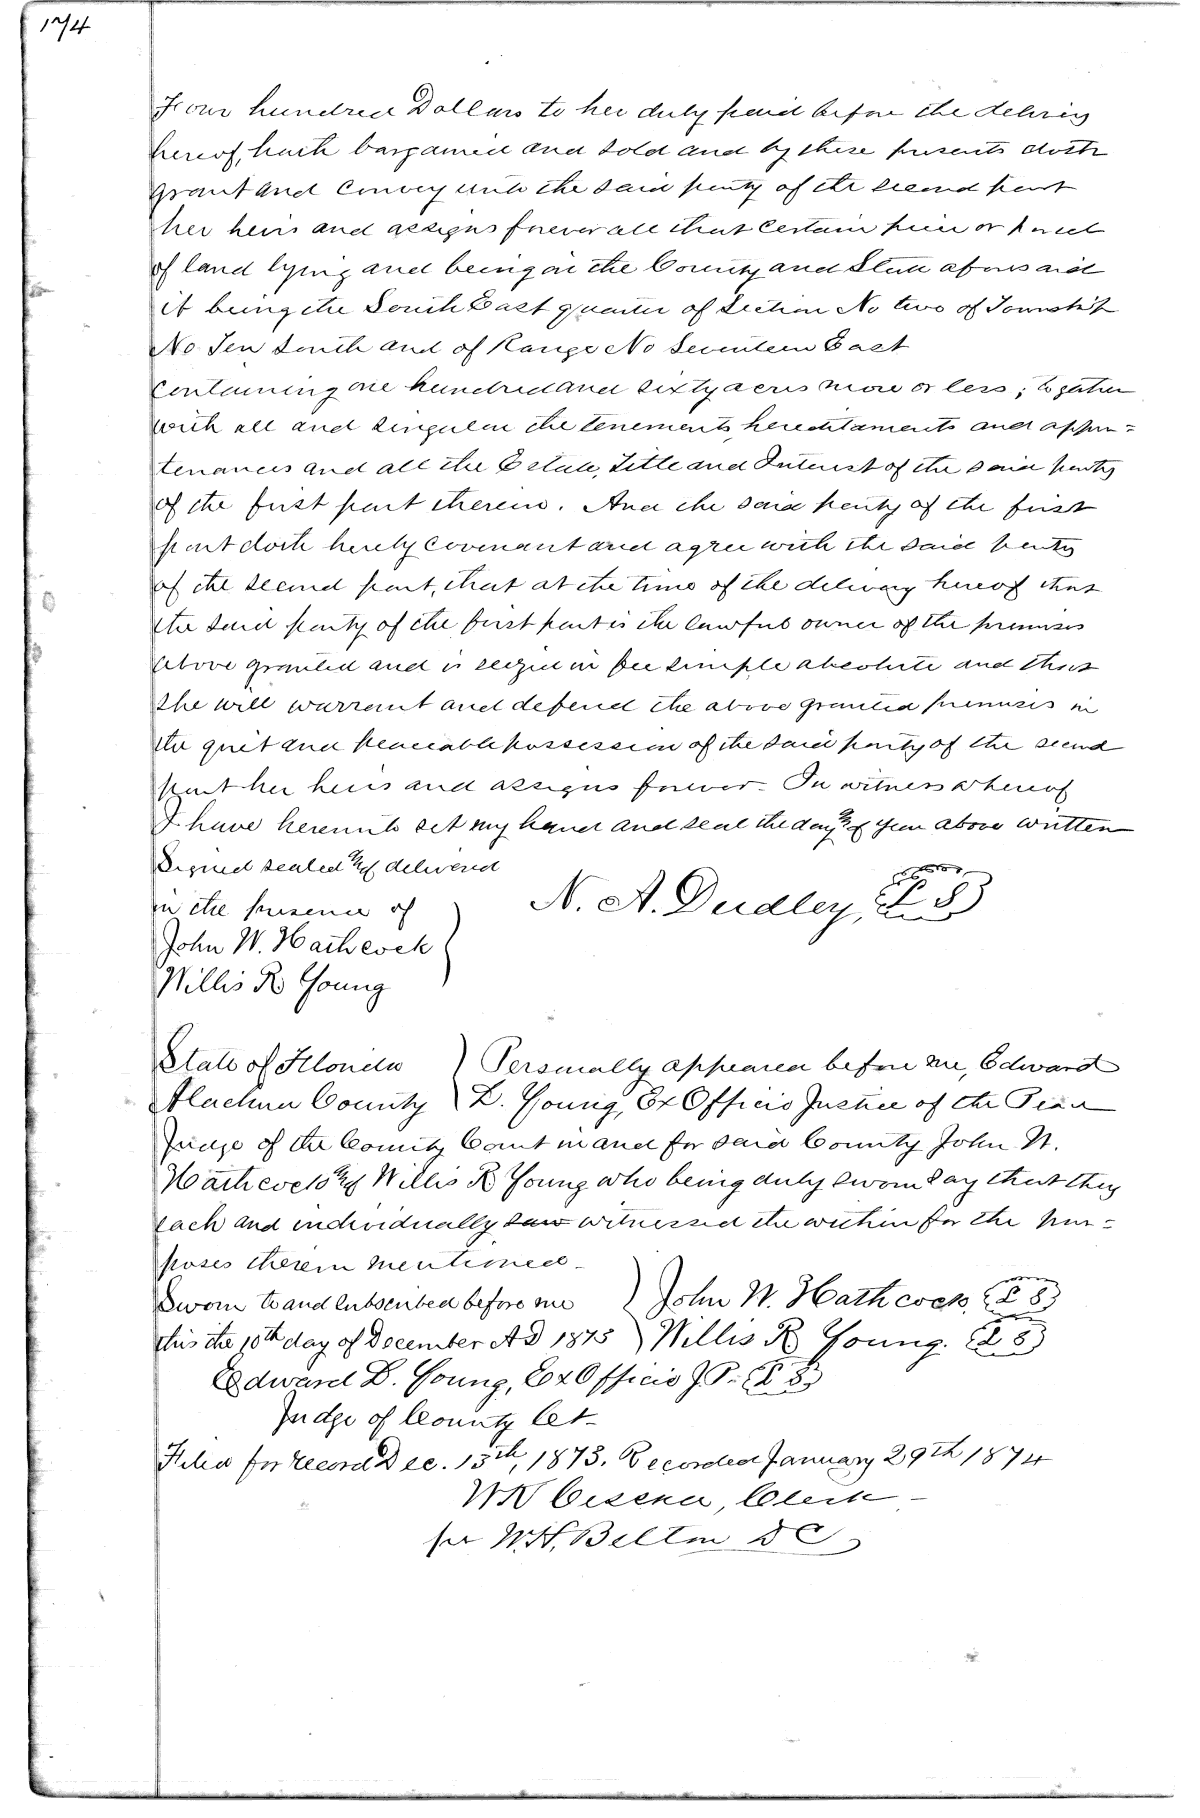 174
Four hundred Dollars to her duly paid before the delivry
hereof, hath bargained and sold and by these presents doth
grant and convey unto the said party of the second part
her heirs and assigns forever all that certain piece or parcel
of land lying and being in the County and State aforesaid
it being the South East quarter of Section No two of Township
No Ten South and of Range No Seventeen East
containing one hundred and sixty acres more or less; together
with all and singular the tenements, hereditaments and appur=
tenances and all the Estate, Title and Interest of the said party
of the first part therein. And the said party of the first
part doth hereby covenant and agree with the said party
of the second part, that at the time of the delivery hereof that
the said party of the first part is the lawful owner of the premises
above granted and is seized in fee simple absolute and that
she will warrant and defend the above granted premises in
the quiet and peaceable possession of the said party of the second
part her heirs and assigns forever. In witness whereof
I have hereunto set my hand and seal the day & year above written
Signed sealed & delivered
in the presence of
N. A. Dudley, (L S)
John W. Hathcock
Willis R Young
State of Florida ) Personally appeared before me, Edward
Alachua County ) D. Young, Ex Officio Justice of the Peace
Judge of the County Court in and for said County John W.
Hathcock & Willis R Young who being duly sworn say that they
each and individually saw witnessed the within for the pur=
poses therein mentioned.
Sworn to and subscribed before me ) John W. Hathcock. (L S)
this the 10th day of December A D 1873 ) Willis R Young. (L S)
Edward D. Young, Ex Officio J. P. (L S)
Judge of County Ct.
Filed for record Dec. 13th, 1873. Recorded January 29th 1874
W K Cessna, Clerk
per W. H. Belton D C